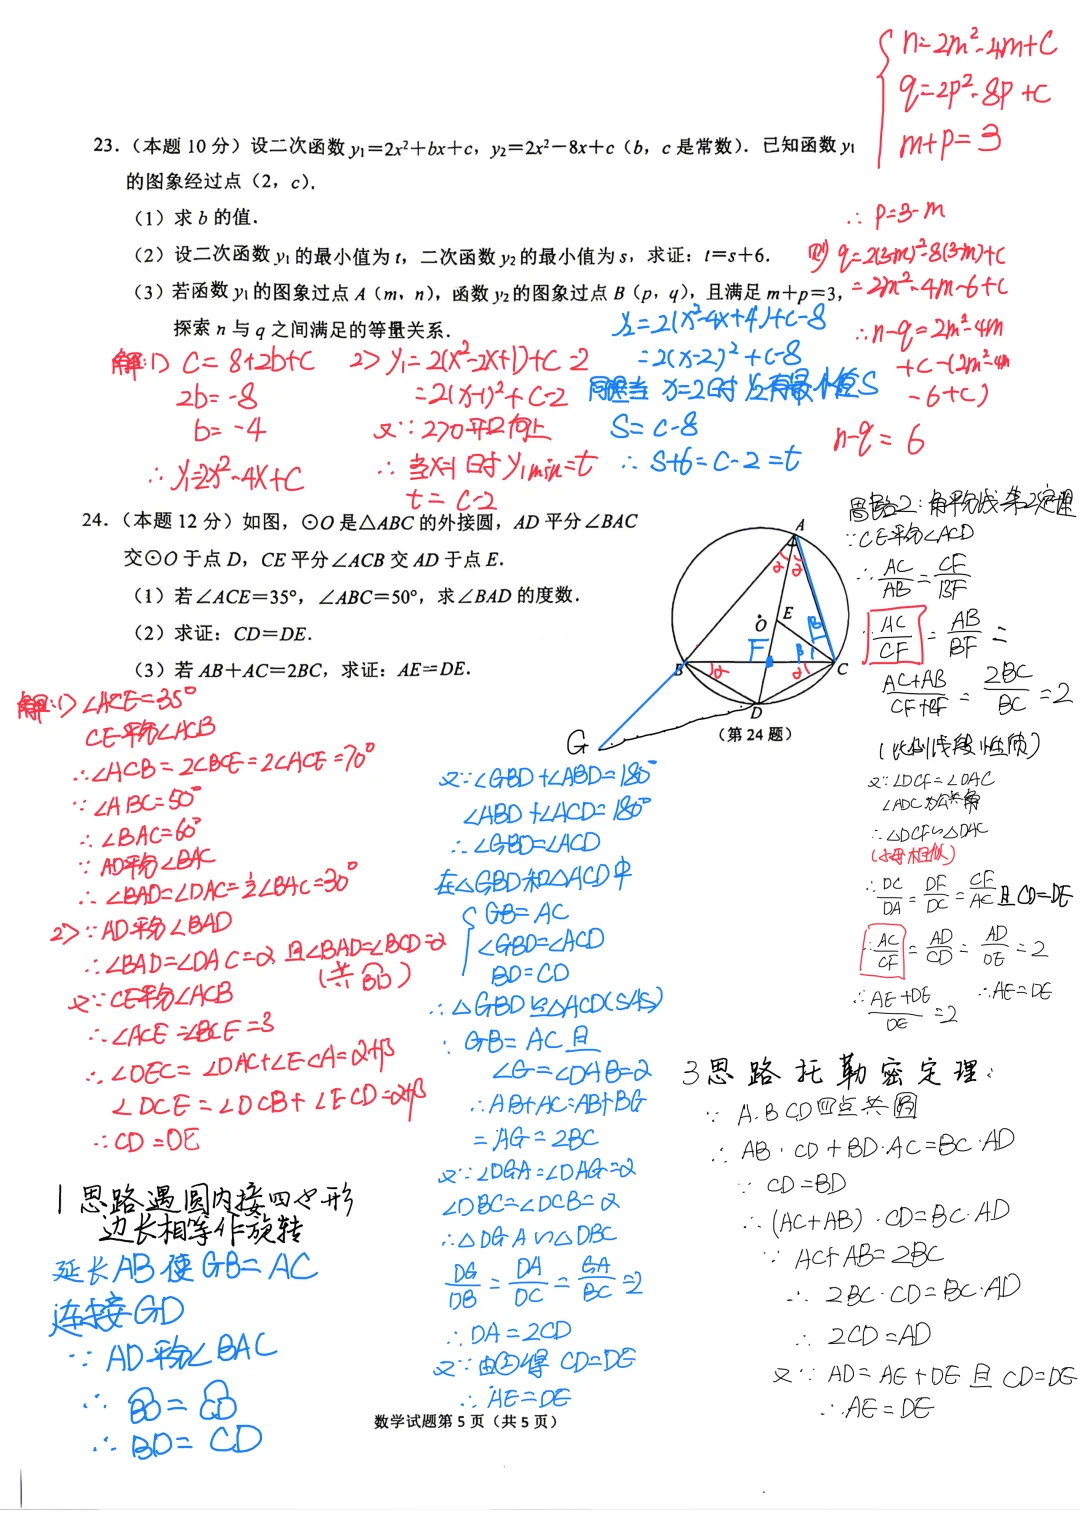 n=2m²-4m+c
q=2p²-8p+c
m+p=3
23.（本题 10 分）设二次函数 y₁=2x²+bx+c，y₂=2x²-8x+c（b，c 是常数）. 已知函数 y₁
的图象经过点（2，c）.
（1）求 b 的值.
（2）设二次函数 y₁ 的最小值为 t，二次函数 y₂ 的最小值为 s，求证：t=s+6.
（3）若函数 y₁ 的图象过点 A（m，n），函数 y₂ 的图象过点 B（p，q），且满足 m+p=3，
探索 n 与 q 之间满足的等量关系.
∴ p=3-m
则 q=2(3-m)²-8(3-m)+c
=2m²-4m-6+c
∴n-q=2m²-4m
+c-(2m²-4m
-6+c)
n-q=6
解:1) c=8+2b+c
2b=-8
b=-4
∴y₁=2x²-4x+c
2) y₁=2(x²-2x+1)+c-2
=2(x-1)²+c-2
又∵2>0 开口向上
∴当x=1时 y₁min=t
t=c-2
y₂=2(x²-4x+4)+c-8
=2(x-2)²+c-8
同理当 x=2时 y₂有最小值S
S=c-8
∴S+6=c-2=t
24.（本题 12 分）如图，⊙O 是△ABC 的外接圆，AD 平分∠BAC
交⊙O 于点 D，CE 平分∠ACB 交 AD 于点 E.
（1）若∠ACE=35°，∠ABC=50°，求∠BAD 的度数.
（2）求证：CD=DE.
（3）若 AB+AC=2BC，求证：AE=DE.
A
α
α
O
E
F
β
β
B
α
α
C
D
G
（第 24 题）
解:1)∠ACE=35°
CE平分∠ACB
∴∠ACB=2∠BCE=2∠ACE=70°
∵∠ABC=50°
∴∠BAC=60°
∵AD平分∠BAC
∴∠BAD=∠DAC=½∠BAC=30°
2)∵AD平分∠BAD
∴∠BAD=∠DAC=α 且∠BAD=∠BCD=α
(共BD)
又∵CE平分∠ACB
∴∠ACE=∠BCE=β
∴∠DEC=∠DAC+∠ECA=α+β
∠DCE=∠DCB+∠ECD=α+β
∴CD=DE
1思路遇圆内接四边形
边长相等作旋转
延长AB使GB=AC
连接GD
∵AD平分∠BAC
∴BD=CD
∴BD=CD
又∵∠GBD+∠ABD=180°
∠ABD+∠ACD=180°
∴∠GBD=∠ACD
在△GBD和△ACD中
GB=AC
∠GBD=∠ACD
BD=CD
∴△GBD≌△ACD(SAS)
∴GB=AC且
∠G=∠DAB=α
∴AB+AC=AB+BG
=AG=2BC
又∵∠DGA=∠DAG=α
∠DBC=∠DCB=α
∴△DGA∽△DBC
DG/DB=DA/DC=GA/BC=2
∴DA=2CD
又∵由②得 CD=DE
∴AE=DE
思路2:角平分线第2定理
∵CE平分∠ACD
∴AC/AB=CF/BF
∵AC/CF=AB/BF=
AC+AB/CF+BF=2BC/BC=2
(比例线段性质)
又∵∠DCF=∠DAC
∠ADC为公共角
∴△DCF∽△DAC
(子母相似)
∴DC/DA=DF/DC=CF/AC且CD=DE
∴AC/CF=AD/CD=AD/DE=2
∴AE+DE/DE=2 ∴AE=DE
3思路托勒密定理:
∵A.BCD四点共圆
∴AB·CD+BD·AC=BC·AD
∵CD=BD
∴(AC+AB)·CD=BC·AD
∵AC+AB=2BC
∴2BC·CD=BC·AD
∴2CD=AD
又∵AD=AE+DE且CD=DE
∴AE=DE
数学试题第 5 页（共 5 页）